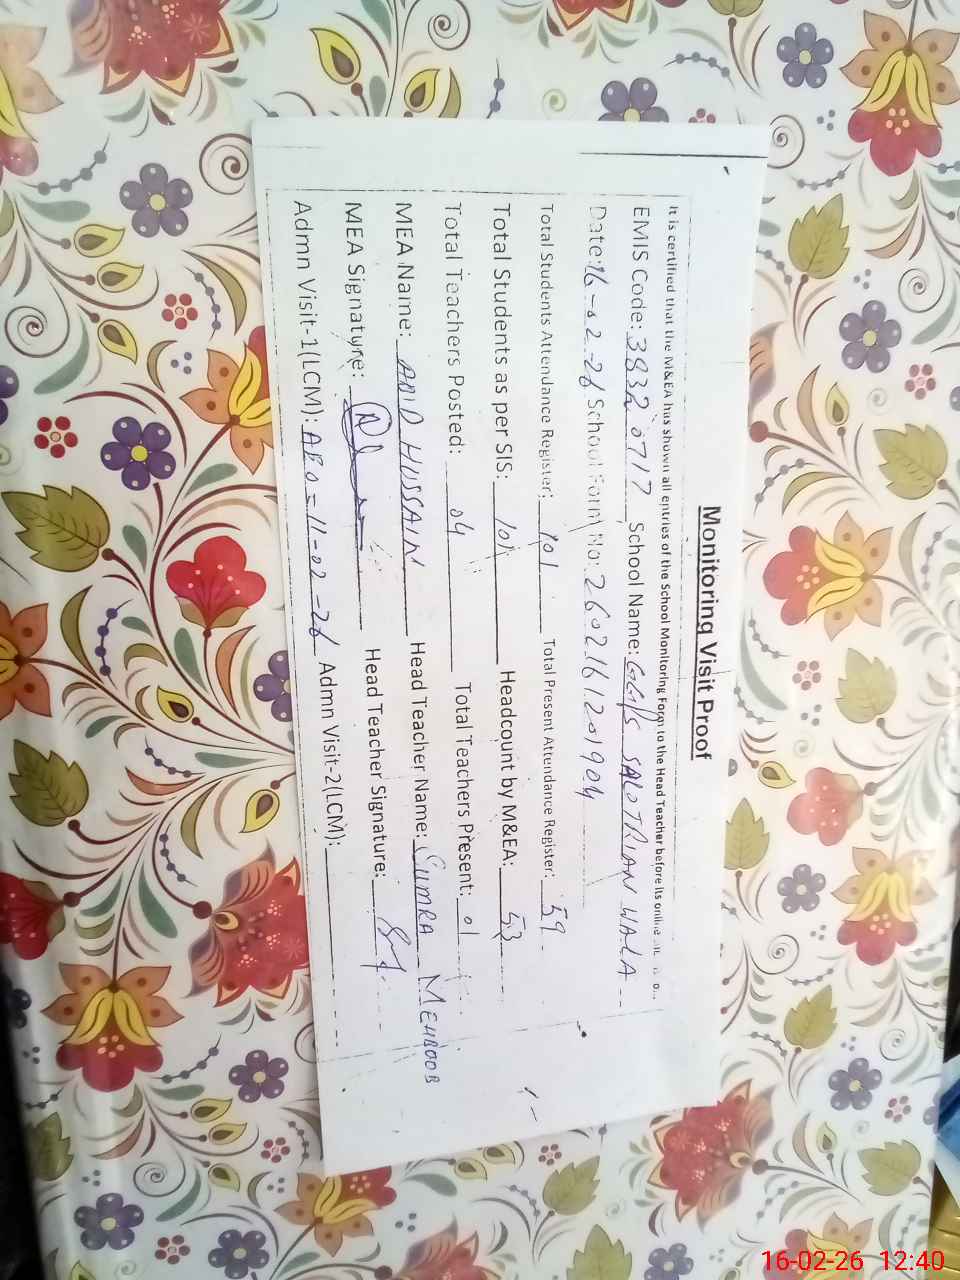 Monitoring Visit Proof
It is certified that the M&EA has shown all entries of the School Monitoring Form to the Head Teacher before its online
EMIS Code: 38320717 School Name: GGPS SALOTRIAN WALA
Date: 16-02-26 School Form No: 2602161201904
Total Students Attendance Register: 101 Total Present Attendance Register: 59
Total Students as per SIS: 101 Headcount by M&EA: 53
Total Teachers Posted: 04 Total Teachers Present: 01
MEA Name: ABID HUSSAIN Head Teacher Name: SUMRA MEHBOOB
MEA Signature: Head Teacher Signature:
Admn Visit-1(LCM): AEO = 11-02-26 Admn Visit-2(LCM):
16-02-26 12:40